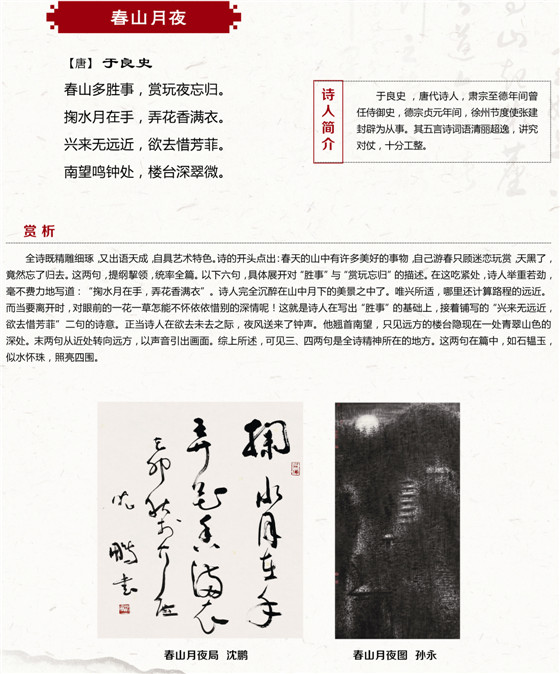 春山月夜
【唐】 于良史
春山多胜事，赏玩夜忘归。
掬水月在手，弄花香满衣。
兴来无远近，欲去惜芳菲。
南望鸣钟处，楼台深翠微。
诗人简介
于良史 ，唐代诗人，肃宗至德年间曾
任侍御史，德宗贞元年间，徐州节度使张建
封辟为从事。其五言诗词语清丽超逸，讲究
对仗，十分工整。
赏 析
全诗既精雕细琢，又出语天成，自具艺术特色。诗的开头点出：春天的山中有许多美好的事物，自己游春只顾迷恋玩赏，天黑了，
竟然忘了归去。这两句，提纲挈领，统率全篇。以下六句，具体展开对“胜事”与“赏玩忘归”的描述。在这吃紧处，诗人举重若劲，
毫不费力地写道：“掬水月在手，弄花香满衣”。诗人完全沉醉在山中月下的美景之中了。唯兴所适，哪里还计算路程的远近。
而当要离开时，对眼前的一花一草怎能不怀依依惜别的深情呢！这就是诗人在写出“胜事”的基础上，接着铺写的“兴来无远近，
欲去惜芳菲”二句的诗意。正当诗人在欲去未去之际，夜风送来了钟声。他翘首南望，只见远方的楼台隐现在一处青翠山色的
深处。末两句从近处转向远方，以声音引出画面。综上所述，可见三、四两句是全诗精神所在的地方。这两句在篇中，如石韫玉，
似水怀珠，照亮四围。
掬水月在手
弄花香满衣
沈鹏书
春山月夜局 沈鹏
春山月夜图 孙永